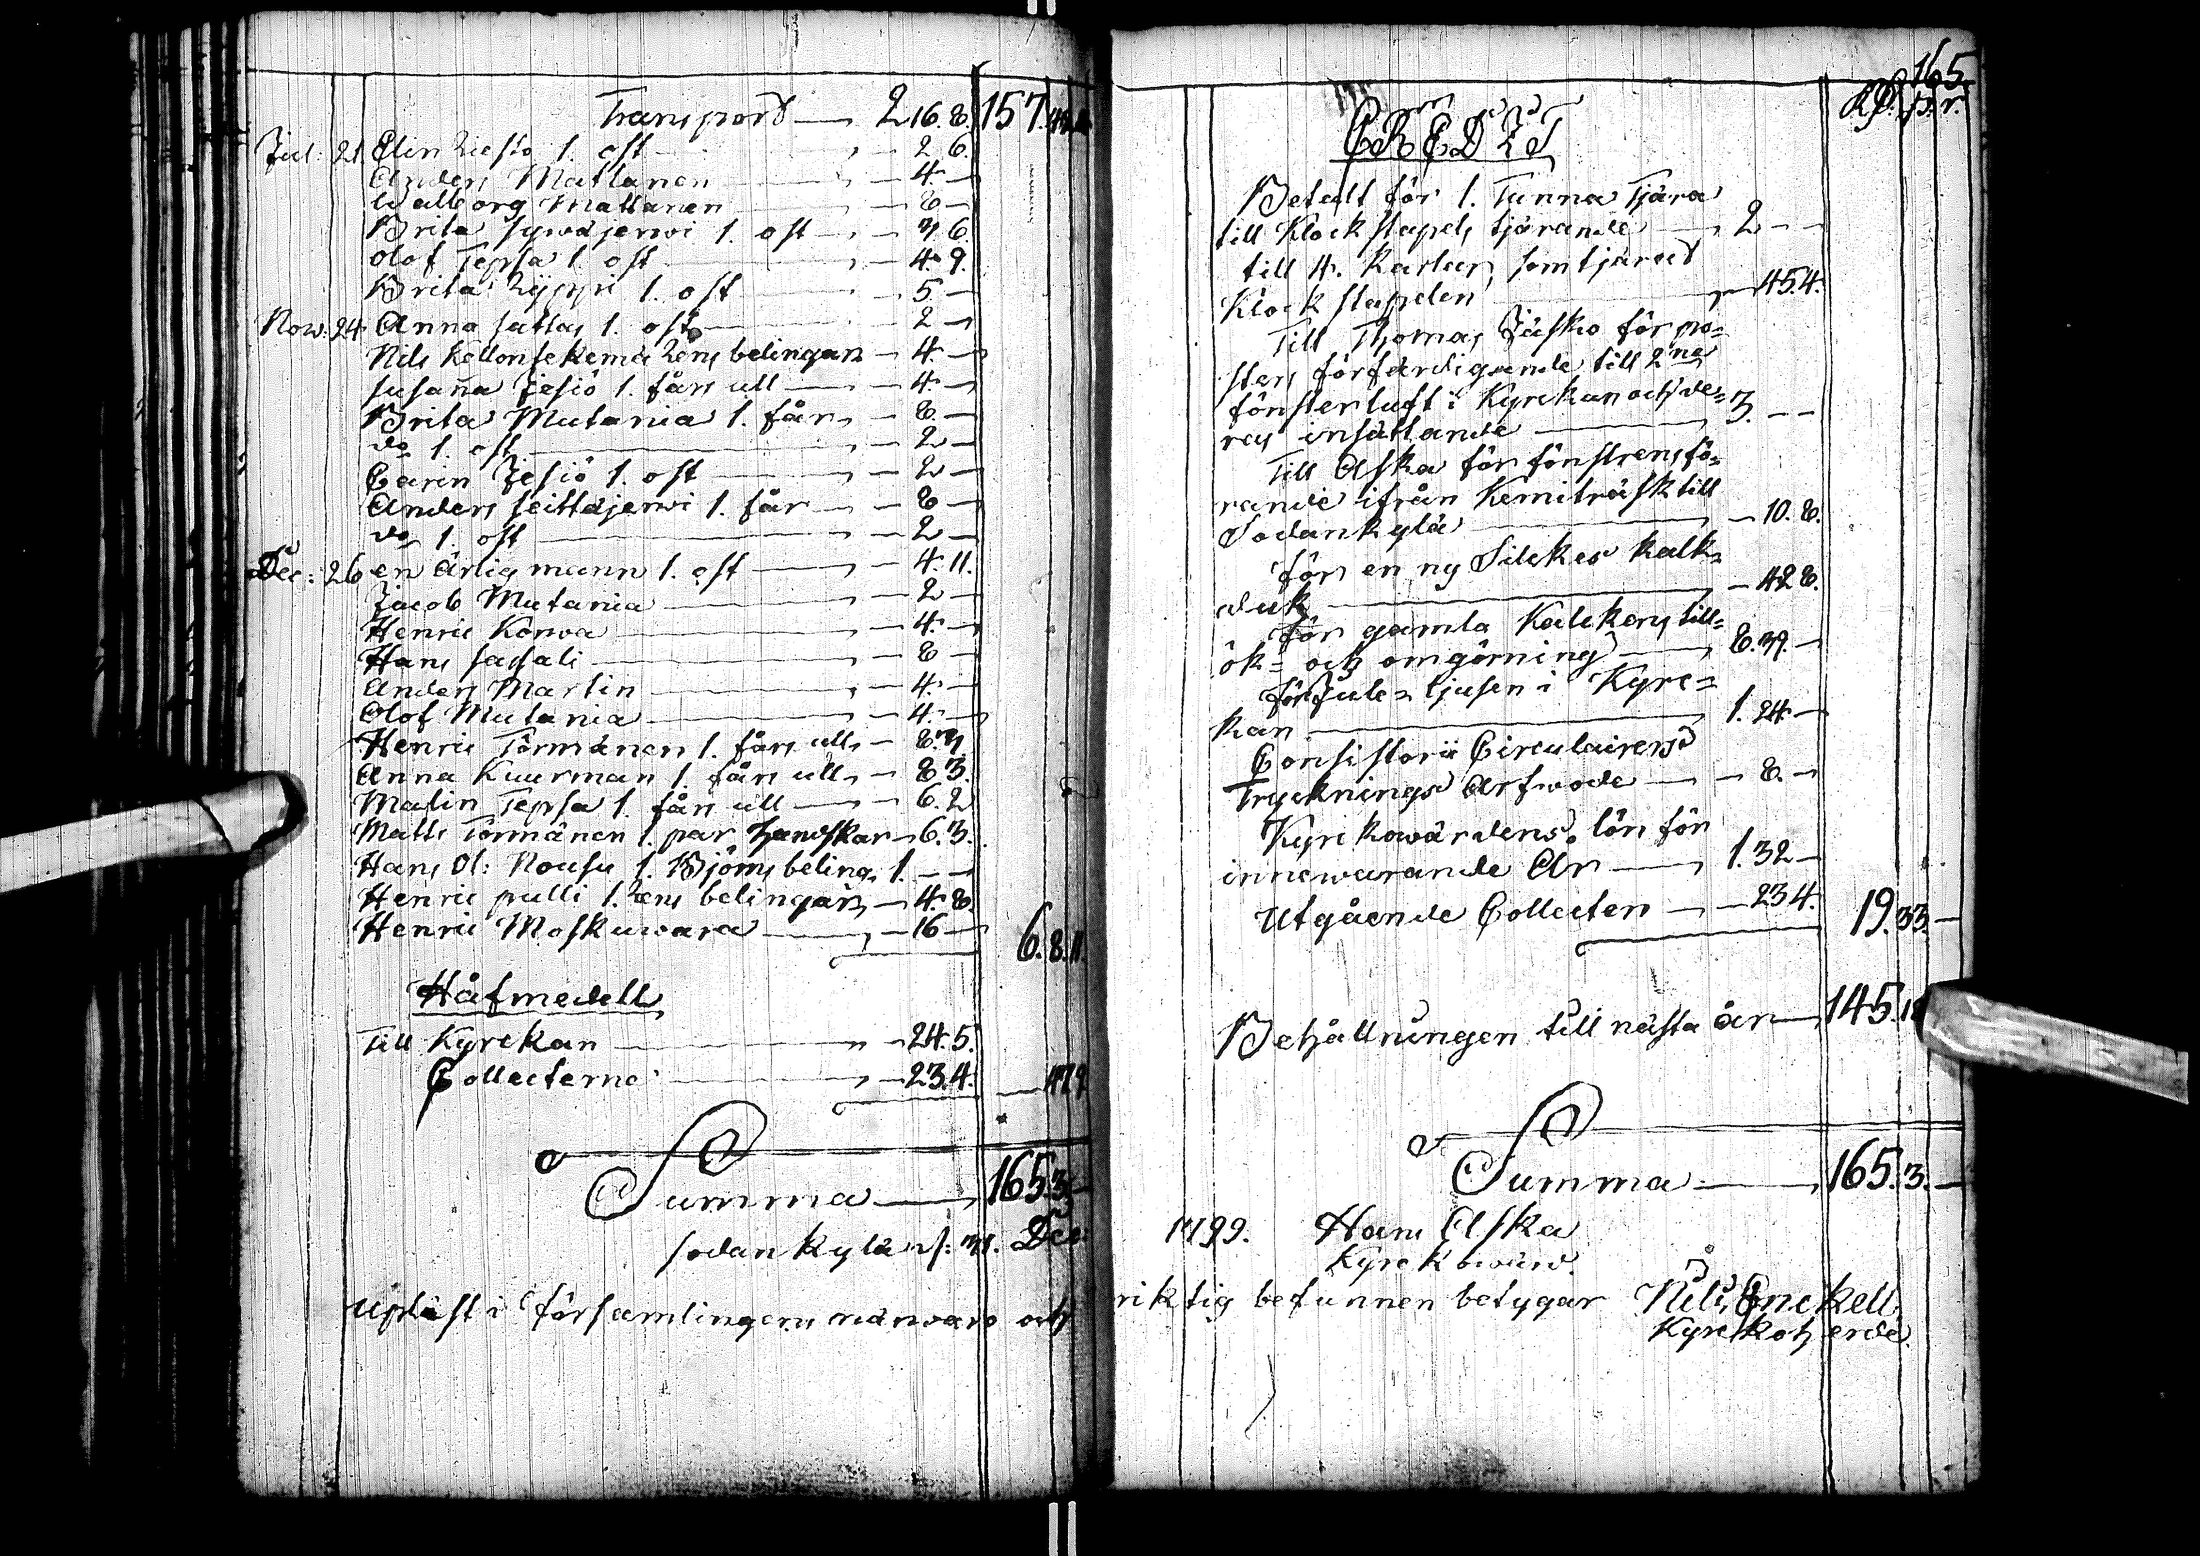 Transport — 2 16. 8. 157. 44.
Jul: 21. Elin Liesto 1. ost — 2. 6.
Anders Mattanen — 4. —
Walborg Mattanen — 8 —
Brita sywäjerwi 1. ost — 7. 6.
Olof Tepsa 1. ost — 4. 9.
Brita Kyppi 1. ost — 5 —
Now: 24. Anna sattas 1. ost — 2 —
Nils Kellonsekemä Rens belingar — 4. —
Susanna Jesiö 1. fårs ull — 4 —
Brita Mutania 1. får — 8. —
do 1. ost — 2 —
Carin Jesiö 1. ost — 2 —
Anders seittäjerwi 1. får — 8 —
do 1. ost — 2 —
Dec: 26 en ärlig mann 1. ost — 4. 11.
Jacob Mutania — 2 —
Henric Korwa — 4. —
Hans sassali — 8 —
Anders Martin — 4. —
Olof Mutania — 4. —
Henric Törmänen 1. fårs ull — 8. 7.
Anna Kuurman 1. fårs ull — 8 3.
Malin Tepsa 1. fårs ull — 6. 2
Matts Törmänen 1. par handskar — 6. 3.
Hans Ol: Nousu 1. Björns beling. 1. — —
Henric pulli 1. Rens belingar — 4. 8.
Henric Moskuwara — 16 — 6. 8. 11.
Håfmedell
Till Kyrckan — 24. 5.
Collecterne — 23. 4. — 47 9
Summa — 165. 3. —
Sodankylä d: 31. Dec:
Upläst i församlingens närwaro och
165.
Rd. s. r.
CREDIT
Betalt för 1. Tunna Tjära
till Klockstapels tjärande — 2 — —
till 4. Karlar, som tjärat
Klockstapelen — 45. 4.
Till Thomas Jäsko för po=
sters förfärdigande till 2ne
fönsterluft i Kyrckan och de=
ras insättande — 3. — —
Till Aska för fönstrens fö=
rande ifrån Kemiträsk till
Sodankylä — 10. 8.
för en ny Silckes kalk=
duk — 42 8.
för gamla Kalckens till=
ök= och omgörning — 8. 39. —
för Jule= ljusen i Kyrc=
kan — 1. 24. —
Consistorii Circulairens
Trycknings Arfwode — 8. —
Kyrckowärdens lön för
innewarande År — 1. 32 —
Utgående Collecten — 23 4. 19. 33. —
Behållningen till nästa år — 145. 18
Summa — 165. 3. —
1799. Hans Aska
Kyrckowärd.
riktig befunnen betygar Nils Enckell
Kyrckoherde